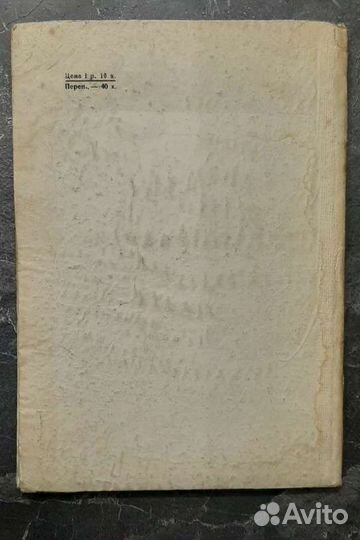 Цена 1 р. 10 к.
Переп. — 40 к.
Avito